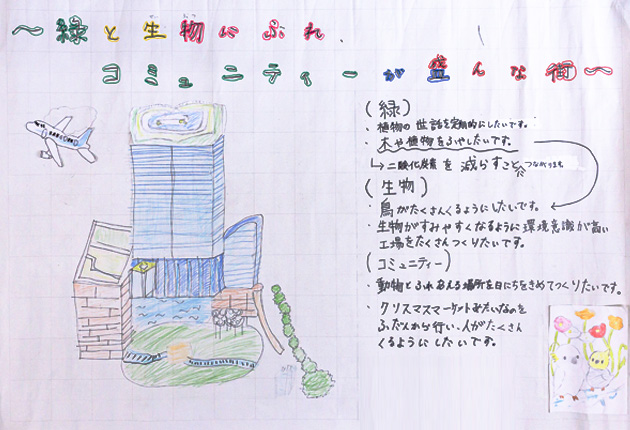 〜緑と生物にふれ、
コミュニティーが盛んな街〜
(緑)
・植物の世話を定期的にしたいです。
・木や植物をふやしたいです。
↳二酸化炭素を減らすことにつながります。
(生物)
・鳥がたくさんくるようにしたいです。
・生物がすみやすくなるように環境意識が高い
工場をたくさんつくりたいです。
(コミュニティー)
・動物とふれあえる場所を日にちをきめてつくりたいです。
・クリスマスマーケットみたいなのを
ふだんから行い、人がたくさん
くるようにしたいです。